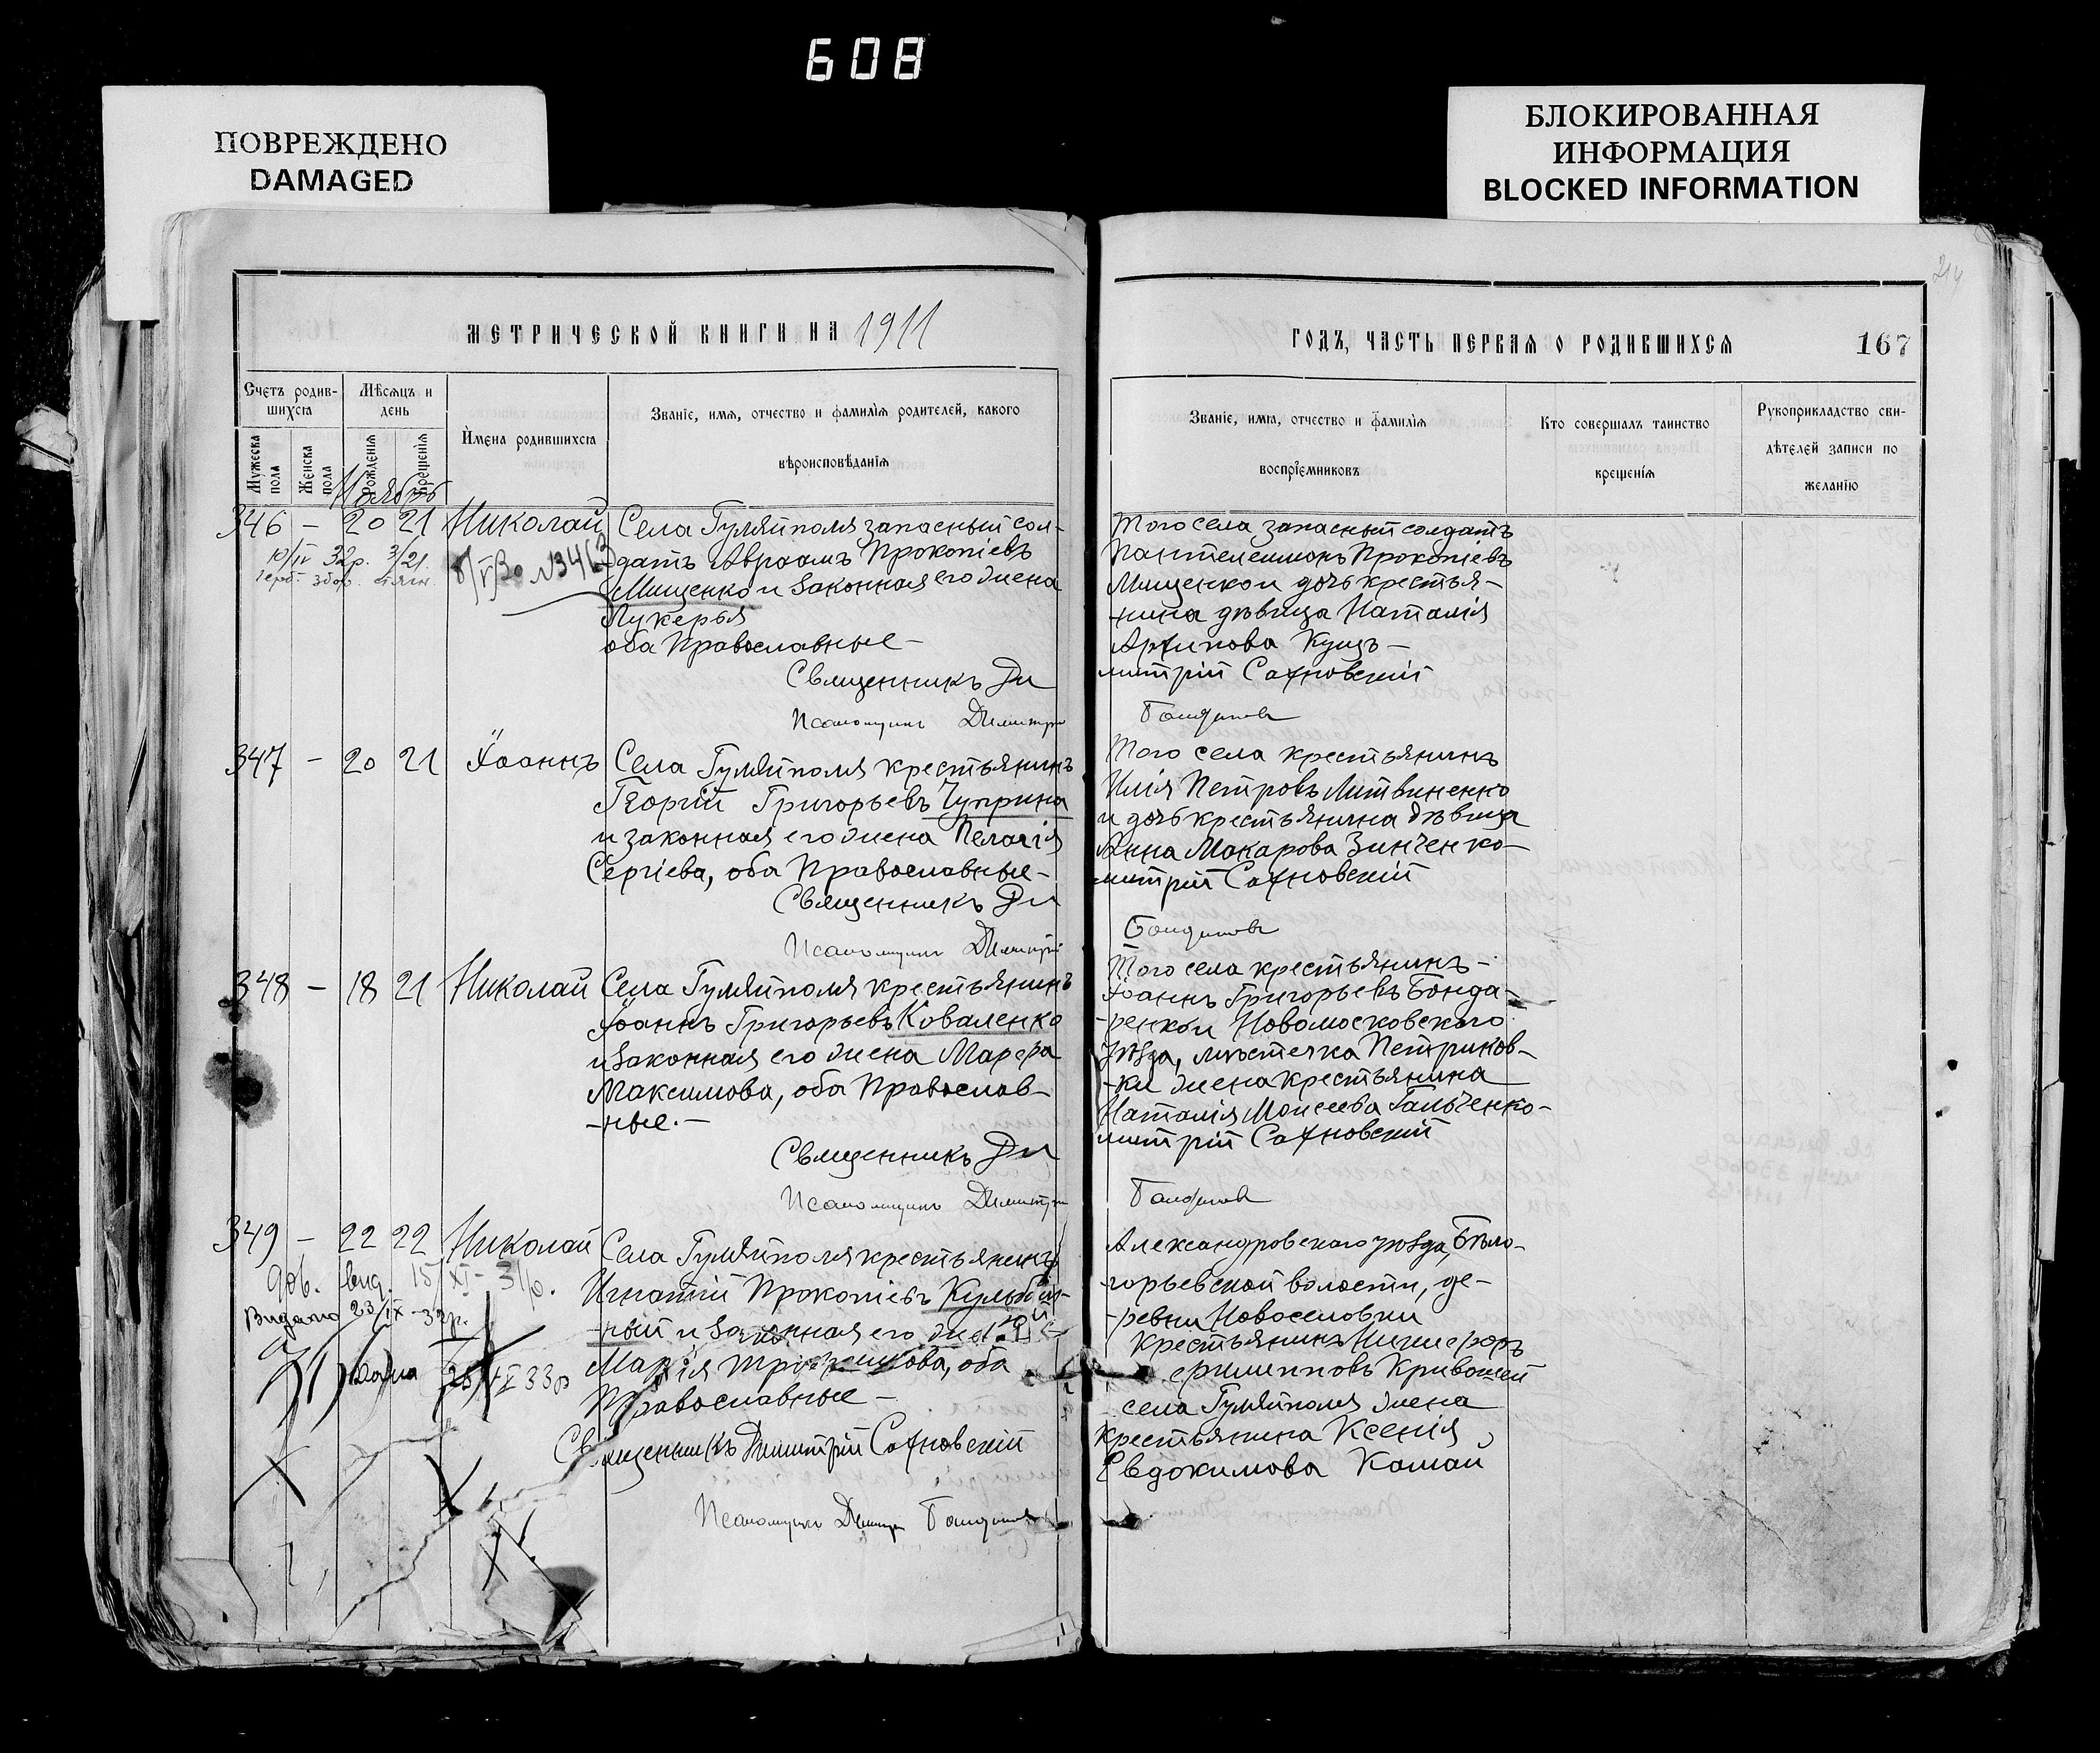 608
ПОВРЕЖДЕНО
DAMAGED
БЛОКИРОВАННАЯ
ИНФОРМАЦИЯ
BLOCKED INFORMATION
МЕТРИЧЕСКОЙ КНИГИ НА 1911
Счетъ родив-
шихся
Мѣсяцъ и
день
Мужеска
пола
Женска
пола
Рожденія
Крещенія
Имена родившихся
Званіе, имя, отчество и фамилія родителей, какого
вѣроисповѣданія
Ноябрь
346 – 20 21 Николай
Села Гуляйполя запасный сол-
датъ Авраамъ Прокопіевъ
Мищенко и законная его жена
Лукерья
оба Православные –
10/IV 32р. 3/21.
№3463
Священникъ Ди
Псаломщикъ Димитрій
347 – 20 21 Іоаннъ
Села Гуляйполя крестьянинъ
Георгій Григорьевъ Чуприна
и законная его жена Пелагія
Сергіева, оба Православные –
Священникъ Ди
Псаломщикъ Димитрій
348 – 18 21 Николай
Села Гуляйполя крестьянинъ
Іоаннъ Григорьевъ Коваленко
и законная его жена Марфа
Максимова, оба Православ-
-ные. –
Священникъ Ди
Псаломщикъ Димитрій
349 – 22 22 Николай
Села Гуляйполя крестьянинъ
Игнатій Прокопіевъ
и законная его
Марія оба
Православные –
вид. 15/XI – 31р.
Видано 23/IX – 32р.
Священникъ Димитрій Сахновскій
Псаломщикъ Димитрій
ГОДЪ, ЧАСТЬ ПЕРВАЯ О РОДИВШИХСЯ
167
214
Званіе, имя, отчество и фамилія
воспріемниковъ
Кто совершалъ таинство
крещенія
Рукоприкладство сви-
дѣтелей записи по
желанію
Того села запасный солдатъ
Пантелеимонъ Прокопіевъ
Мищенко и дочь крестья-
-нина дѣвица Наталія
Архипова Кущъ –
митрій Сахновскій
Того села крестьянинъ
Илія Петровъ Литвиненко
и дочь крестьянина дѣвица
Анна Макарова Зинченко –
митрій Сахновскій
Того села крестьянинъ –
Іоаннъ Григорьевъ Бонда-
-ренко и Новомосковскаго
уѣзда, мѣстечка Петриков-
-ки жена крестьянина
Наталія Моисеева Гальченко –
митрій Сахновскій
Александровскаго уѣзда, Бѣло-
-горьевской волости, де-
-ревни Новоселовки
крестьянинъ Никифоръ
Филипповъ Кривошей
села Гуляйполя жена
крестьянина Ксенія
Евдокимова